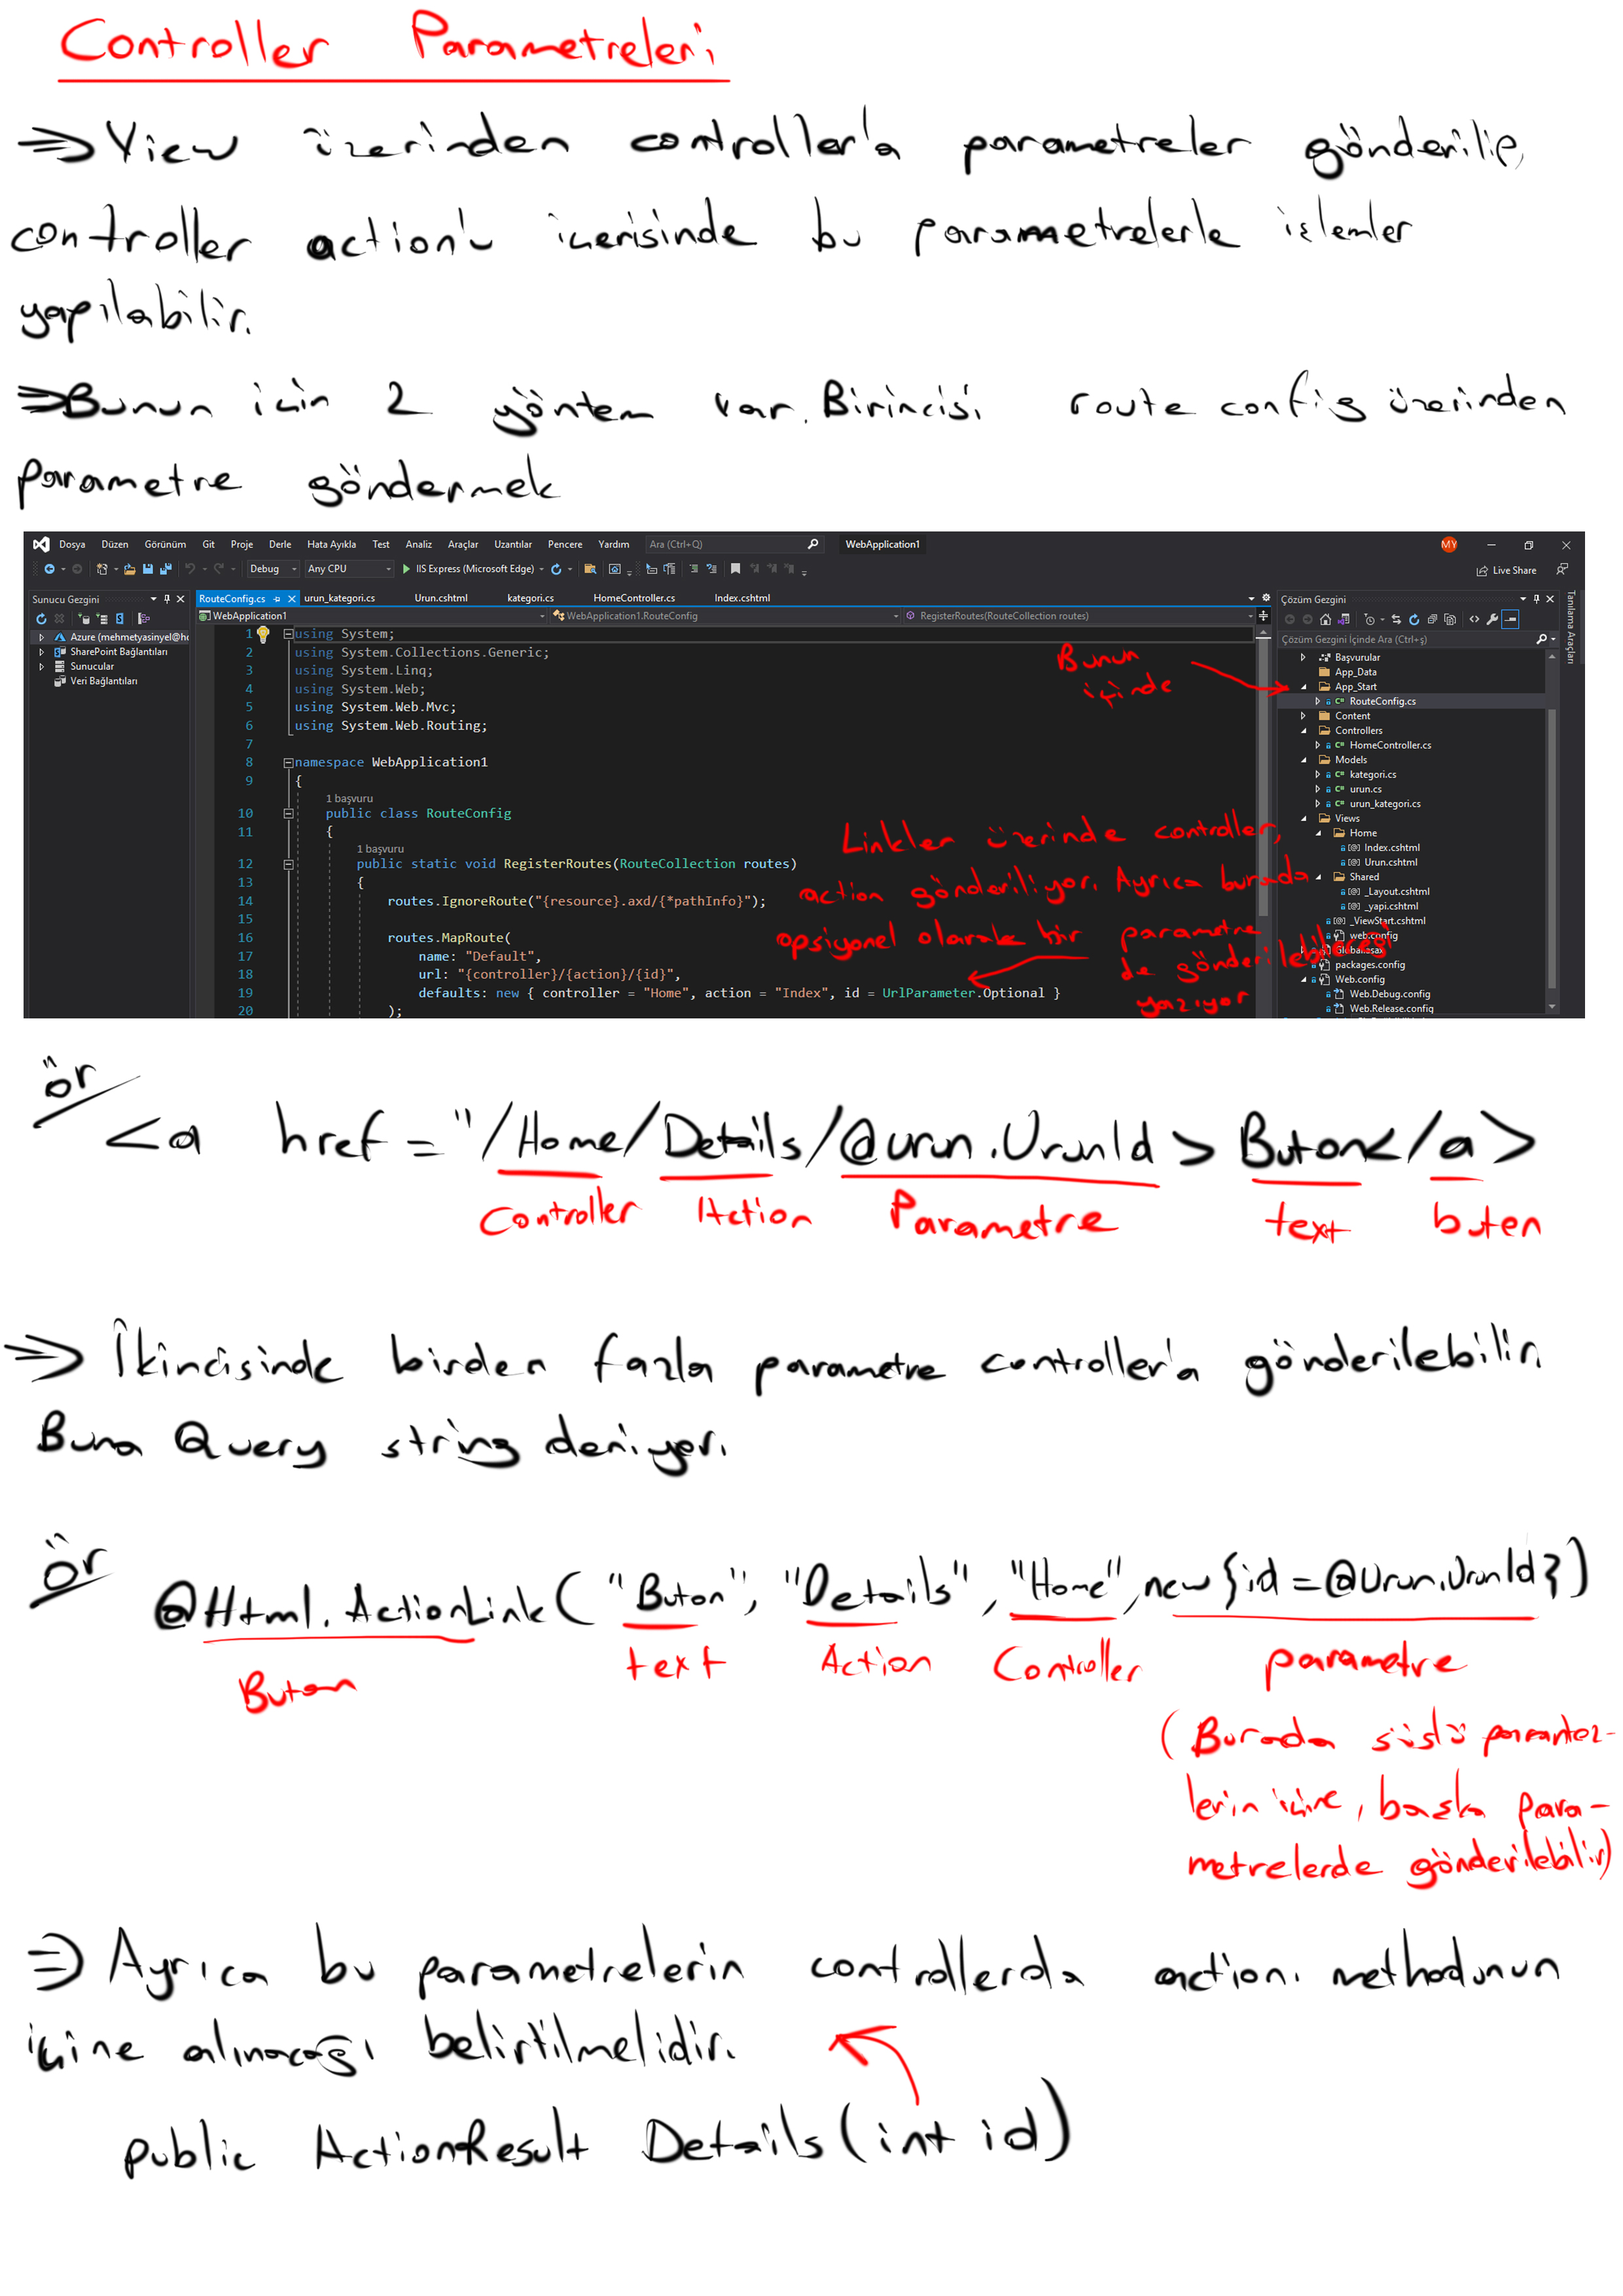 Controller Parametreleri
=> View üzerinden controller'a parametreler gönderilip,
controller action'u içerisinde bu parametrelerle işlemler
yapılabilir.
=> Bunun için 2 yöntem var. Birincisi route config üzerinden
parametre göndermek
Dosya Düzen Görünüm Git Proje Derle Hata Ayıkla Test Analiz Araçlar Uzantılar Pencere Yardım Ara (Ctrl+Q) WebApplication1 MY
Debug Any CPU IIS Express (Microsoft Edge) Live Share
Sunucu Gezgini
Azure (mehmetyasinyel@ho
SharePoint Bağlantıları
Sunucular
Veri Bağlantıları
RouteConfig.cs urun_kategori.cs Urun.cshtml kategori.cs HomeController.cs Index.cshtml
WebApplication1 WebApplication1.RouteConfig RegisterRoutes(RouteCollection routes)
1 using System;
2 using System.Collections.Generic;
3 using System.Linq;
4 using System.Web;
5 using System.Web.Mvc;
6 using System.Web.Routing;
7
8 namespace WebApplication1
9 {
1 başvuru
10 public class RouteConfig
11 {
1 başvuru
12 public static void RegisterRoutes(RouteCollection routes)
13 {
14 routes.IgnoreRoute("{resource}.axd/{*pathInfo}");
15
16 routes.MapRoute(
17 name: "Default",
18 url: "{controller}/{action}/{id}",
19 defaults: new { controller = "Home", action = "Index", id = UrlParameter.Optional }
20 );
Bunun
içinde
Linkler üzerinde controller,
action gönderiliyor. Ayrıca burada
opsiyonel olarak bir parametre
de gönderilebileceği
yazıyor
Çözüm Gezgini
Çözüm Gezgini İçinde Ara (Ctrl+ş)
Başvurular
App_Data
App_Start
RouteConfig.cs
Content
Controllers
HomeController.cs
Models
kategori.cs
urun.cs
urun_kategori.cs
Views
Home
Index.cshtml
Urun.cshtml
Shared
_Layout.cshtml
_yapi.cshtml
_ViewStart.cshtml
web.config
Global.asax
packages.config
Web.config
Web.Debug.config
Web.Release.config
Tanılama Araçları
ör
<a href="/Home/Details/@urun.UrunId> Buton</a>
Controller Action Parametre text buton
=> İkincisinde birden fazla parametre controller'a gönderilebilir.
Buna Query string deniyor.
ör
@Html.ActionLink("Buton", "Details", "Home", new {id=@Urun.UrunId})
Buton text Action Controller parametre
(Burada süslü parantez-
lerin içine, başka para-
metrelerde gönderilebilir)
=> Ayrıca bu parametrelerin controllerda action methodunun
içine alınacağı belirtilmelidir.
public ActionResult Details(int id)